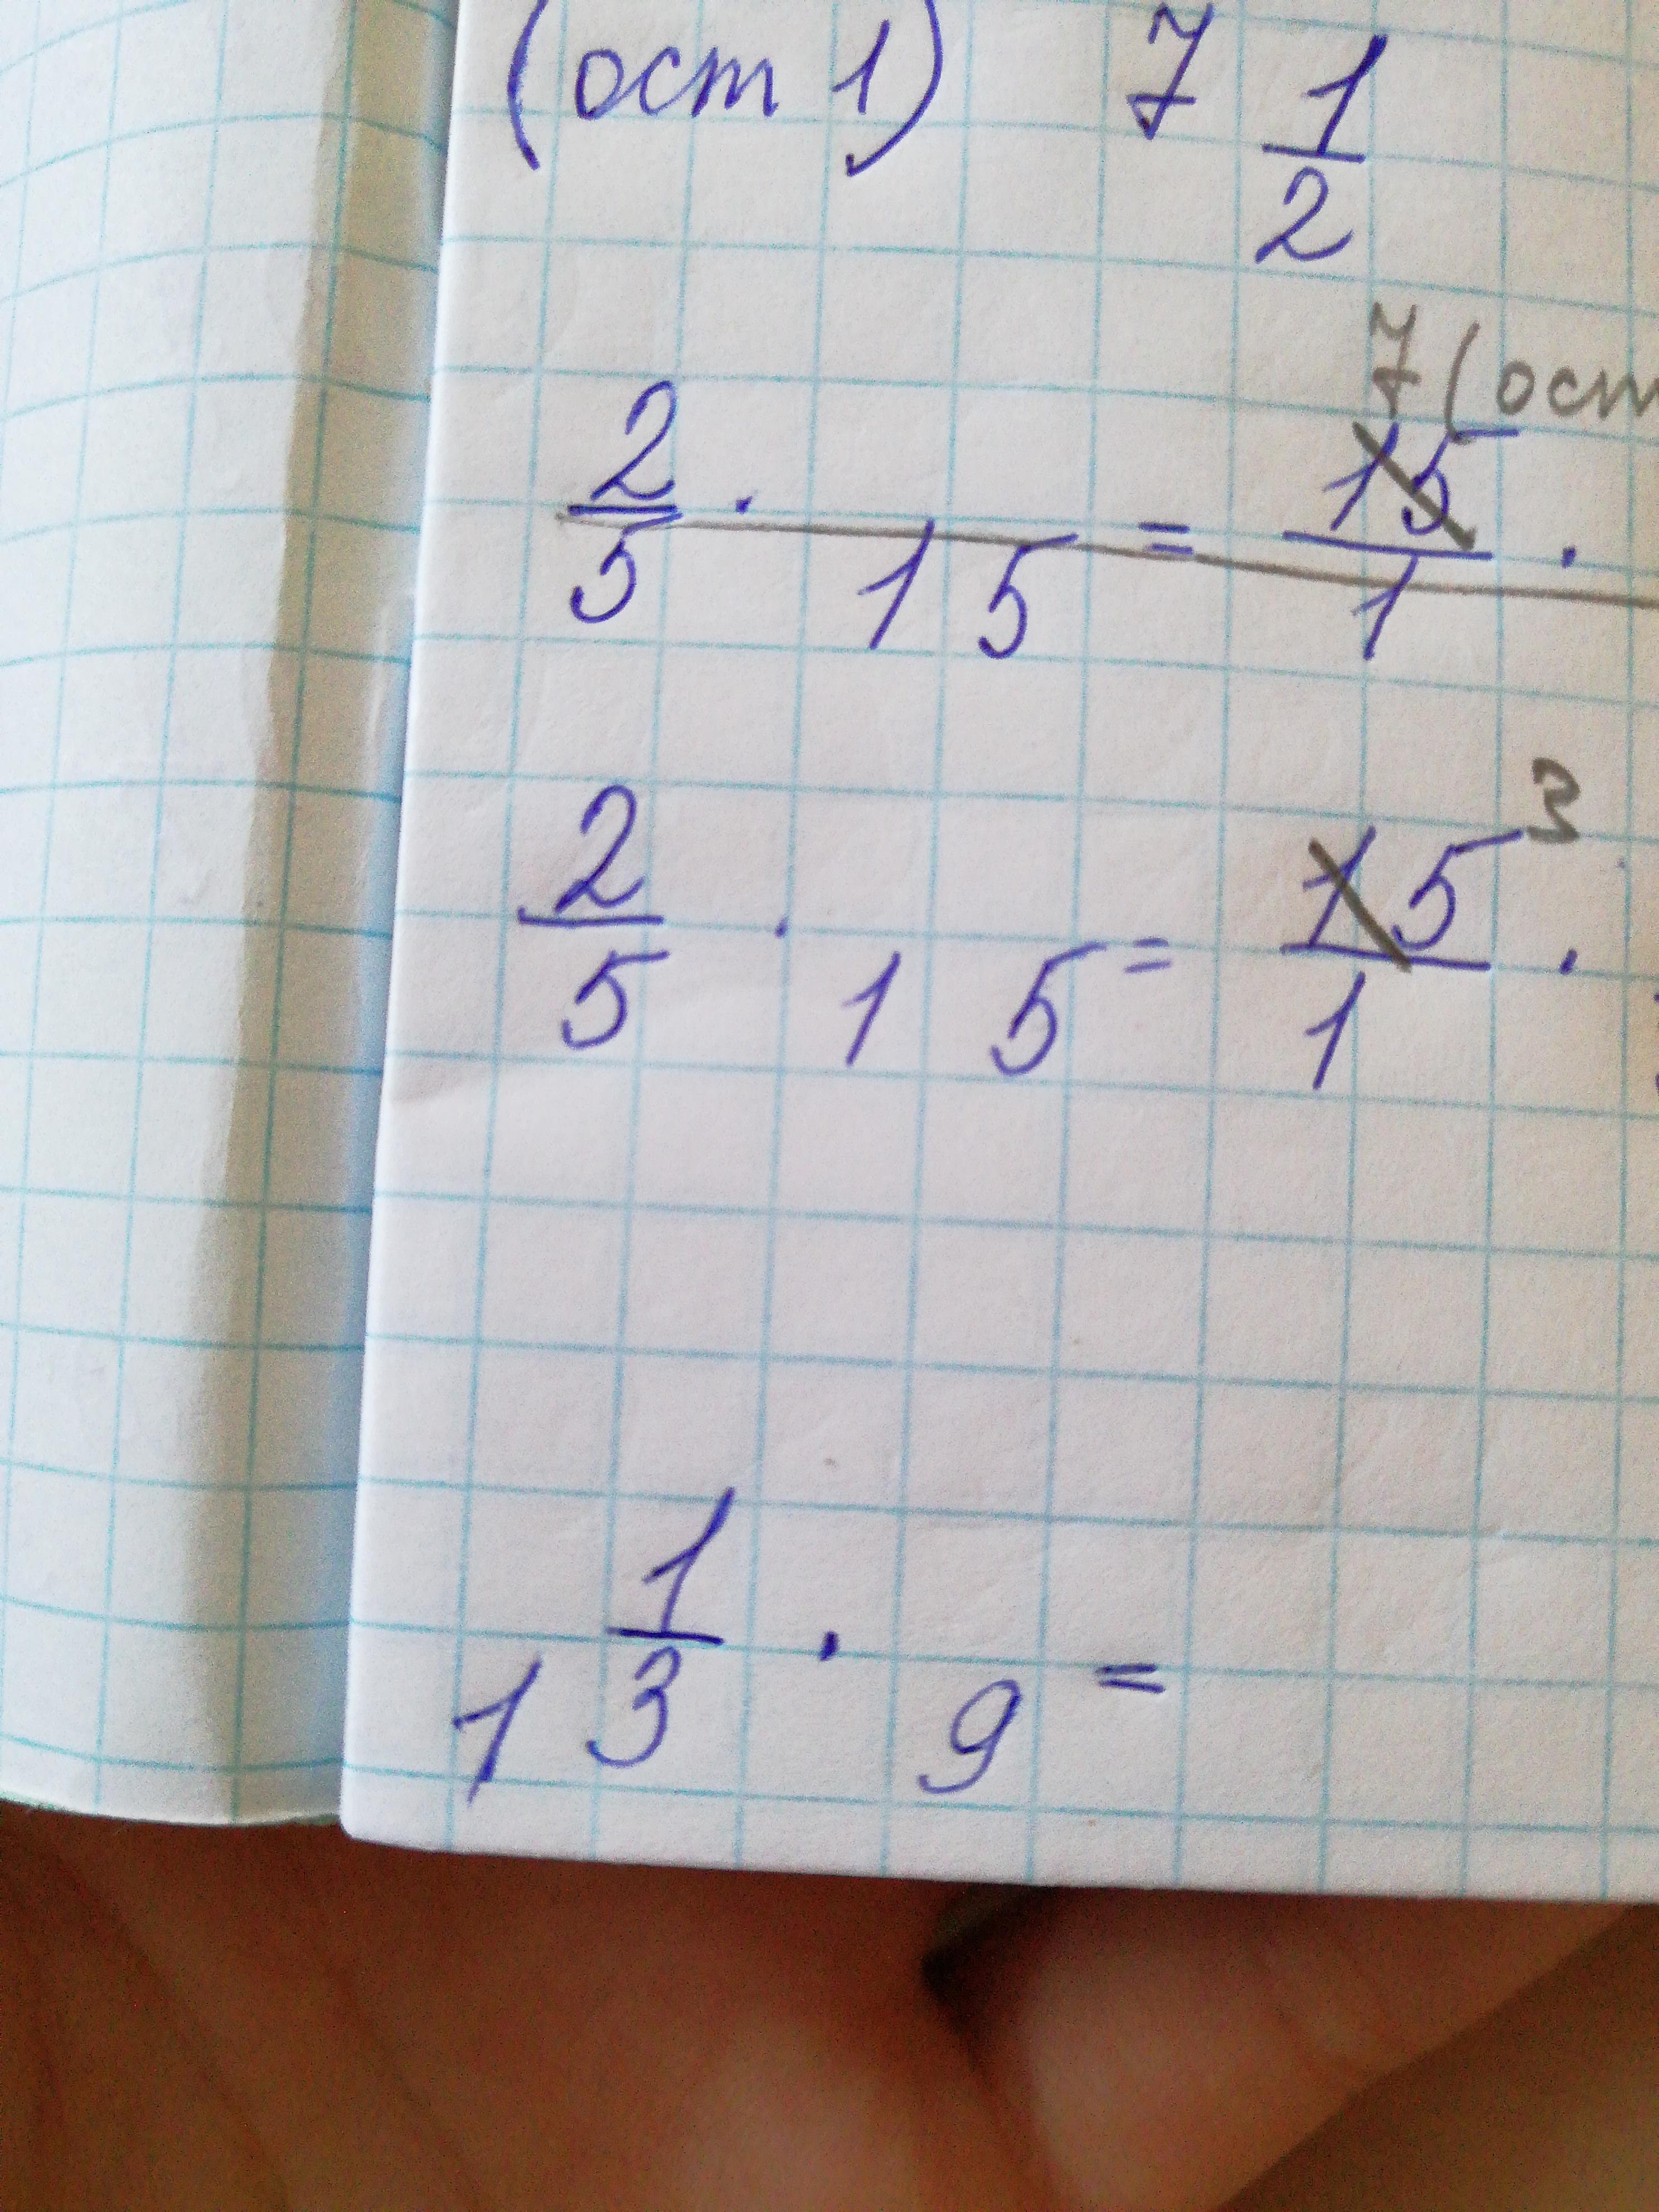 (ост 1) 7 1/2
7 (ост
2/5 · 15 = 15/1 ·
3
2/5 · 15 = 15/1 ·
1 1/3 · 9 =